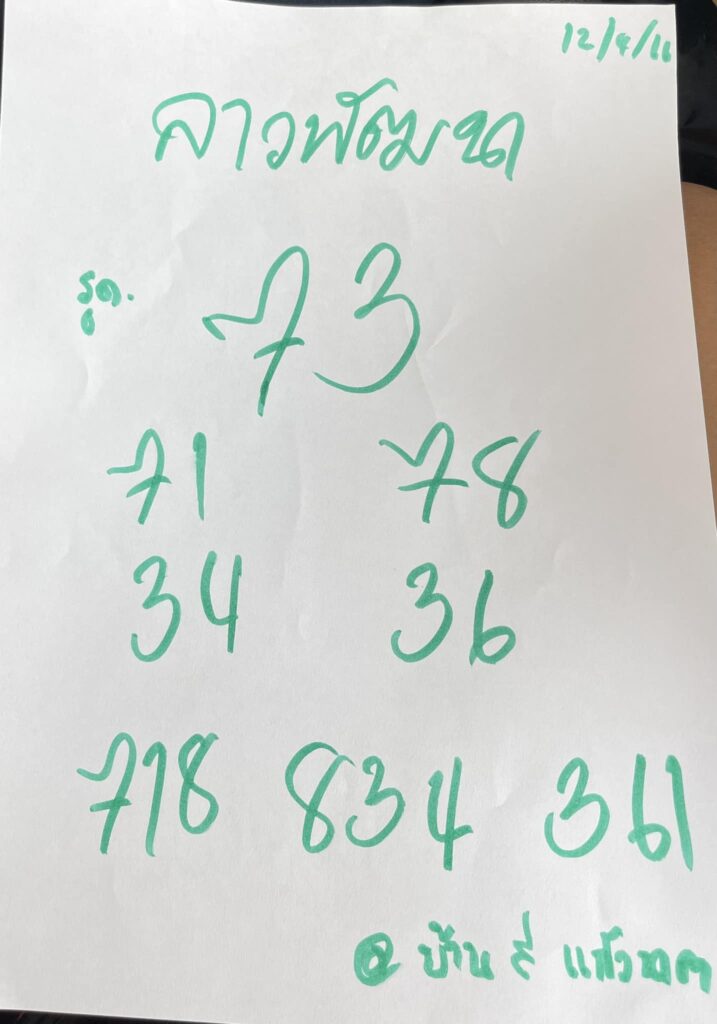 12/4/66
ลาวพัฒนา
รูด.
73
71 78
34 36
718 834 361
@ บ้าน